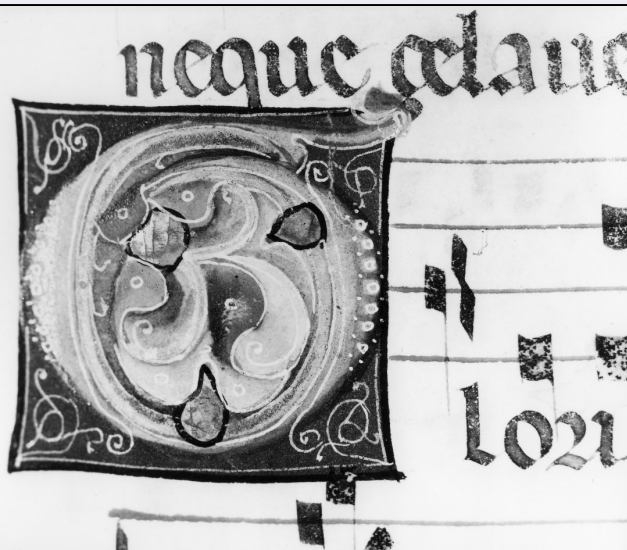 neque celaue
loru